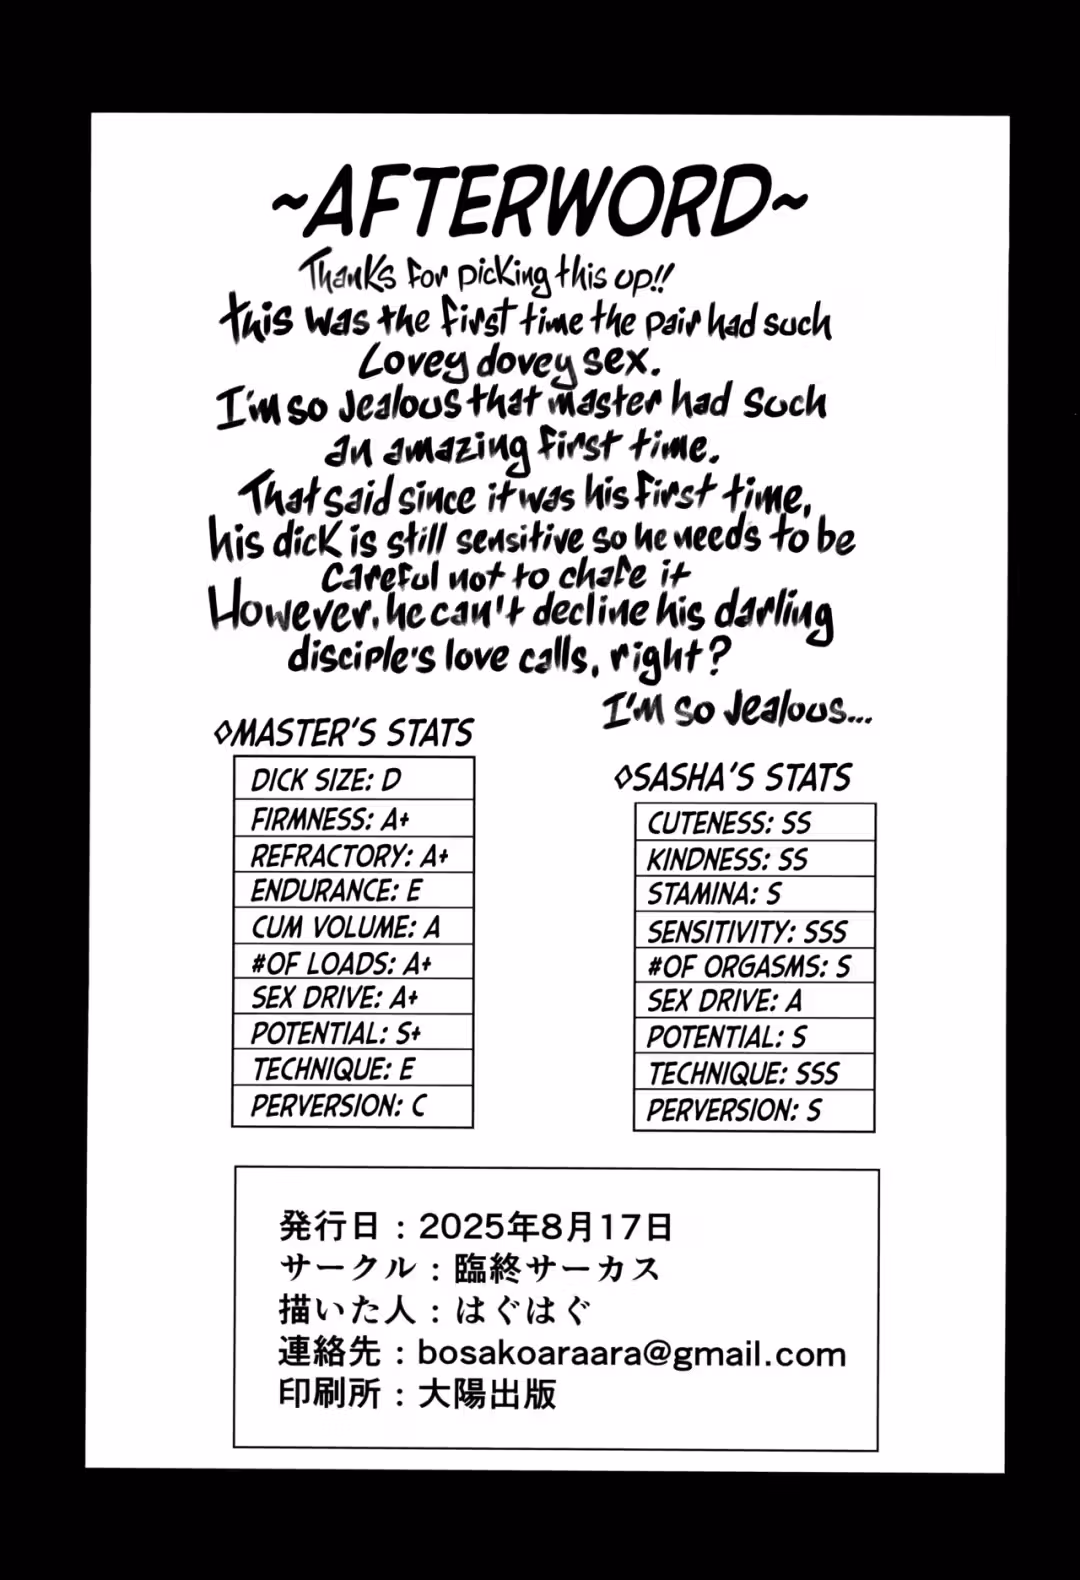 ~AFTERWORD~
Thanks for picking this up!!
this was the first time the pair had such
Lovey dovey sex.
I'm so Jealous that master had such
an amazing first time.
That said since it was his first time,
his dick is still sensitive so he needs to be
careful not to chafe it
However, he can't decline his darling
disciple's love calls, right?
I'm so Jealous...
◇MASTER'S STATS
DICK SIZE: D
FIRMNESS: A+
REFRACTORY: A+
ENDURANCE: E
CUM VOLUME: A
#OF LOADS: A+
SEX DRIVE: A+
POTENTIAL: S+
TECHNIQUE: E
PERVERSION: C
◇SASHA'S STATS
CUTENESS: SS
KINDNESS: SS
STAMINA: S
SENSITIVITY: SSS
#OF ORGASMS: S
SEX DRIVE: A
POTENTIAL: S
TECHNIQUE: SSS
PERVERSION: S
発行日：2025年8月17日
サークル：臨終サーカス
描いた人：はぐはぐ
連絡先：bosakoaraara@gmail.com
印刷所：大陽出版